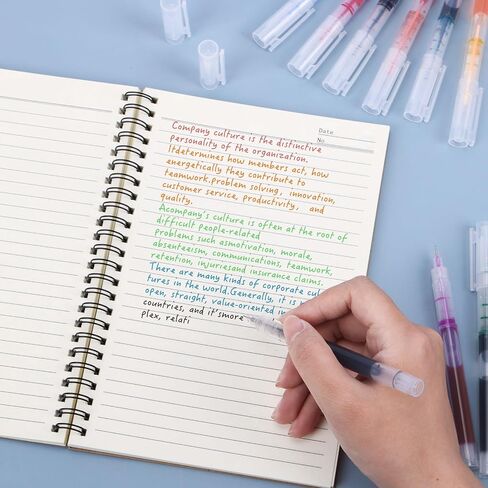 Date
No
Company culture is the distinctive
personality of the organization.
Itdetermines how members act, how
energetically they contribute to
teamwork.problem solving, innovation,
customer service, productivity, and
quality.
Acompany's culture is often at the root of
difficult people-related
problems such asmotivation, morale,
absenteeism, communications, teamwork,
retention, injuriesand insurance claims.
There are many kinds of corporate cul
tures in the world.Generally, it is
open, straight, value-oriented in
countries, and it'smore
plex, relati